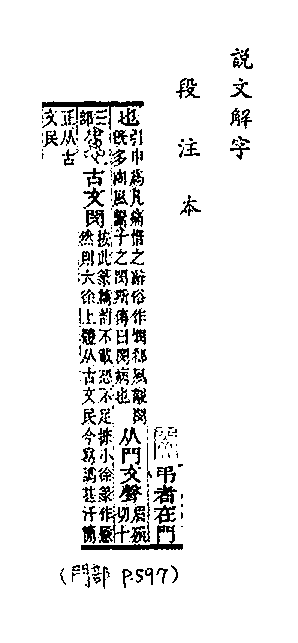 說文解字
段注本
閔 弔者在門
也引申爲凡痛惜之辭俗作憫邶風覯閔
旣多豳風鬻子之閔斯傳曰閔病也 从門文聲 眉殞切十
三部 古文閔 按此篆 不 恐不足據小徐篆作
然則大徐上體从古文民今寫譌甚汗簡
正从古
文民
(門部 P.597)